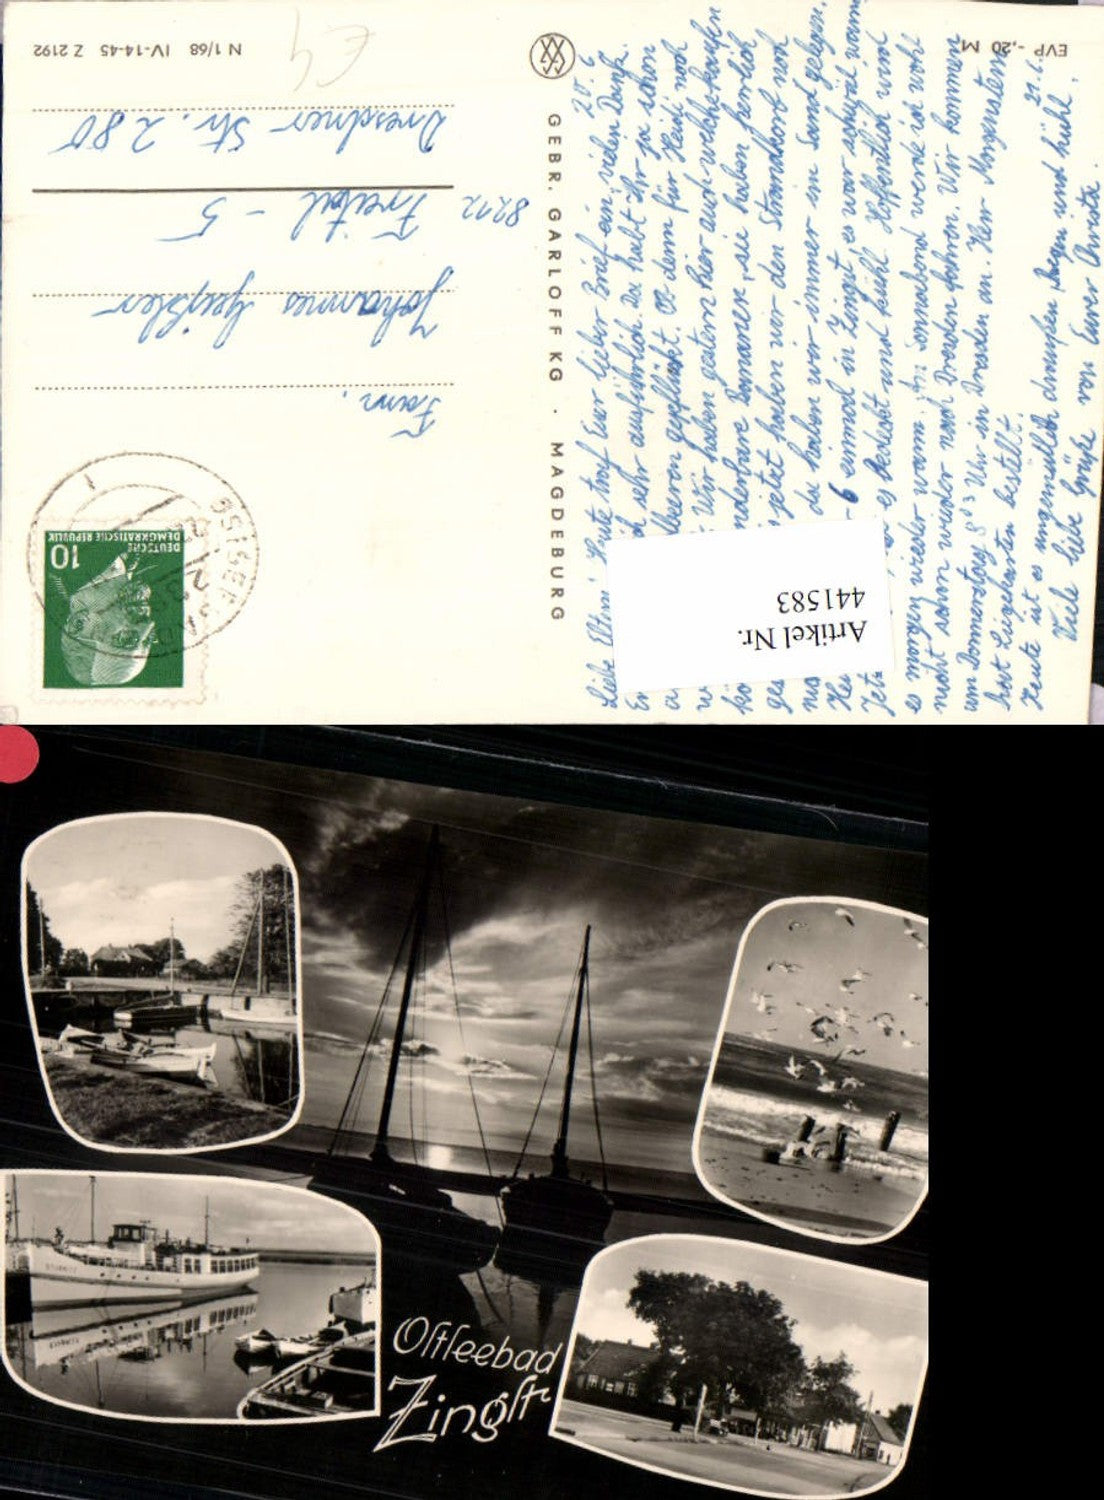 N 1/68 IV-14-45 Z 2192
EVP -,20 M
GEBR. GARLOFF KG · MAGDEBURG
DEUTSCHE
DEMOKRATISCHE REPUBLIK
10
OSTSEEBAD
Fam.
Johannes Geißler
8212 Freital - 5
Dresdner Str. 280
20.6.
Liebe Eltern! Heute traf Euer lieber Brief ein, vielen Dank.
sehr ausführlich. Da habt Ihr ja schon
beeren gepflückt. Ob denn für Heidi noch
Wir haben gestern hier auch welche kaufen
wunderbare Ware, sie haben herrlich
jetzt haben wir den Strandkorb
da haben wir immer im Sand gelegen.
6 einmal in Zingst, es war schwül warm
es bedeckt und kühl. Hoffentlich wird
es morgen wieder warm. Am Sonnabend werde ich wohl
nicht schon wieder nach Dresden fahren. Wir kommen
am Donnerstag Uhr in Dresden an. Herr Morgenstern
hat Liegekarten bestellt. 21.6.
Heute ist es ungemütlich draußen, Regen und kühl.
Viele liebe Grüße von Eurer Anita.
Artikel Nr.
441583
STUBNITZ
Ostseebad
Zingst